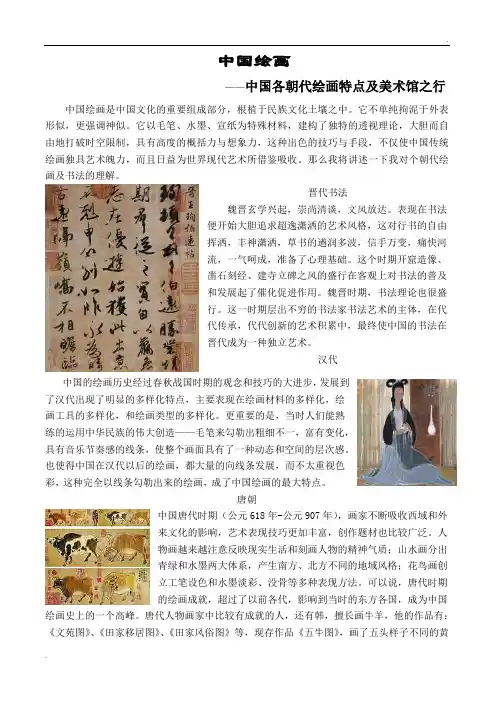 中国绘画
——中国各朝代绘画特点及美术馆之行
中国绘画是中国文化的重要组成部分，根植于民族文化土壤之中。它不单纯拘泥于外表
形似，更强调神似。它以毛笔、水墨、宣纸为特殊材料，建构了独特的透视理论，大胆而自
由地打破时空限制，具有高度的概括力与想象力，这种出色的技巧与手段，不仅使中国传统
绘画独具艺术魄力，而且日益为世界现代艺术所借鉴吸收。那么我将讲述一下我对个朝代绘
画及书法的理解。
晋代书法
魏晋玄学兴起，崇尚清谈，文风放达。表现在书法
便开始大胆追求超逸潇洒的艺术风格，这对行书的自由
挥洒，丰神潇洒，草书的通润多波，信手万变，痛快河
流，一气呵成，准备了心理基础。这个时期开窟造像、
凿石刻经、建寺立碑之风的盛行在客观上对书法的普及
和发展起了催化促进作用。魏晋时期，书法理论也很盛
行。这一时期层出不穷的书法家书法艺术的主体，在代
代传承，代代创新的艺术积累中，最终使中国的书法在
晋代成为一种独立艺术。
汉代
中国的绘画历史经过春秋战国时期的观念和技巧的大进步，发展到
了汉代出现了明显的多样化特点，主要表现在绘画材料的多样化，绘
画工具的多样化，和绘画类型的多样化。更重要的是，当时人们能熟
练的运用中华民族的伟大创造——毛笔来勾勒出粗细不一，富有变化，
具有音乐节奏感的线条，使整个画面具有了一种动态和空间的层次感。
也使得中国在汉代以后的绘画，都大量的向线条发展，而不太重视色
彩，这种完全以线条勾勒出来的绘画，成了中国绘画的最大特点。
唐朝
中国唐代时期（公元 618 年-公元 907 年），画家不断吸收西域和外
来文化的影响，艺术表现技巧更加丰富，创作题材也比较广泛。人
物画越来越注意反映现实生活和刻画人物的精神气质；山水画分出
青绿和水墨两大体系，产生南方、北方不同的地域风格；花鸟画创
立工笔设色和水墨淡彩、没骨等多种表现方法。可以说，唐代时期
的绘画成就，超过了以前各代，影响到当时的东方各国，成为中国
绘画史上的一个高峰。唐代人物画家中比较有成就的人，还有韩，擅长画牛羊，他的作品有：
《文苑图》、《田家移居图》、《田家风俗图》等，现存作品《五牛图》，画了五头样子不同的黄